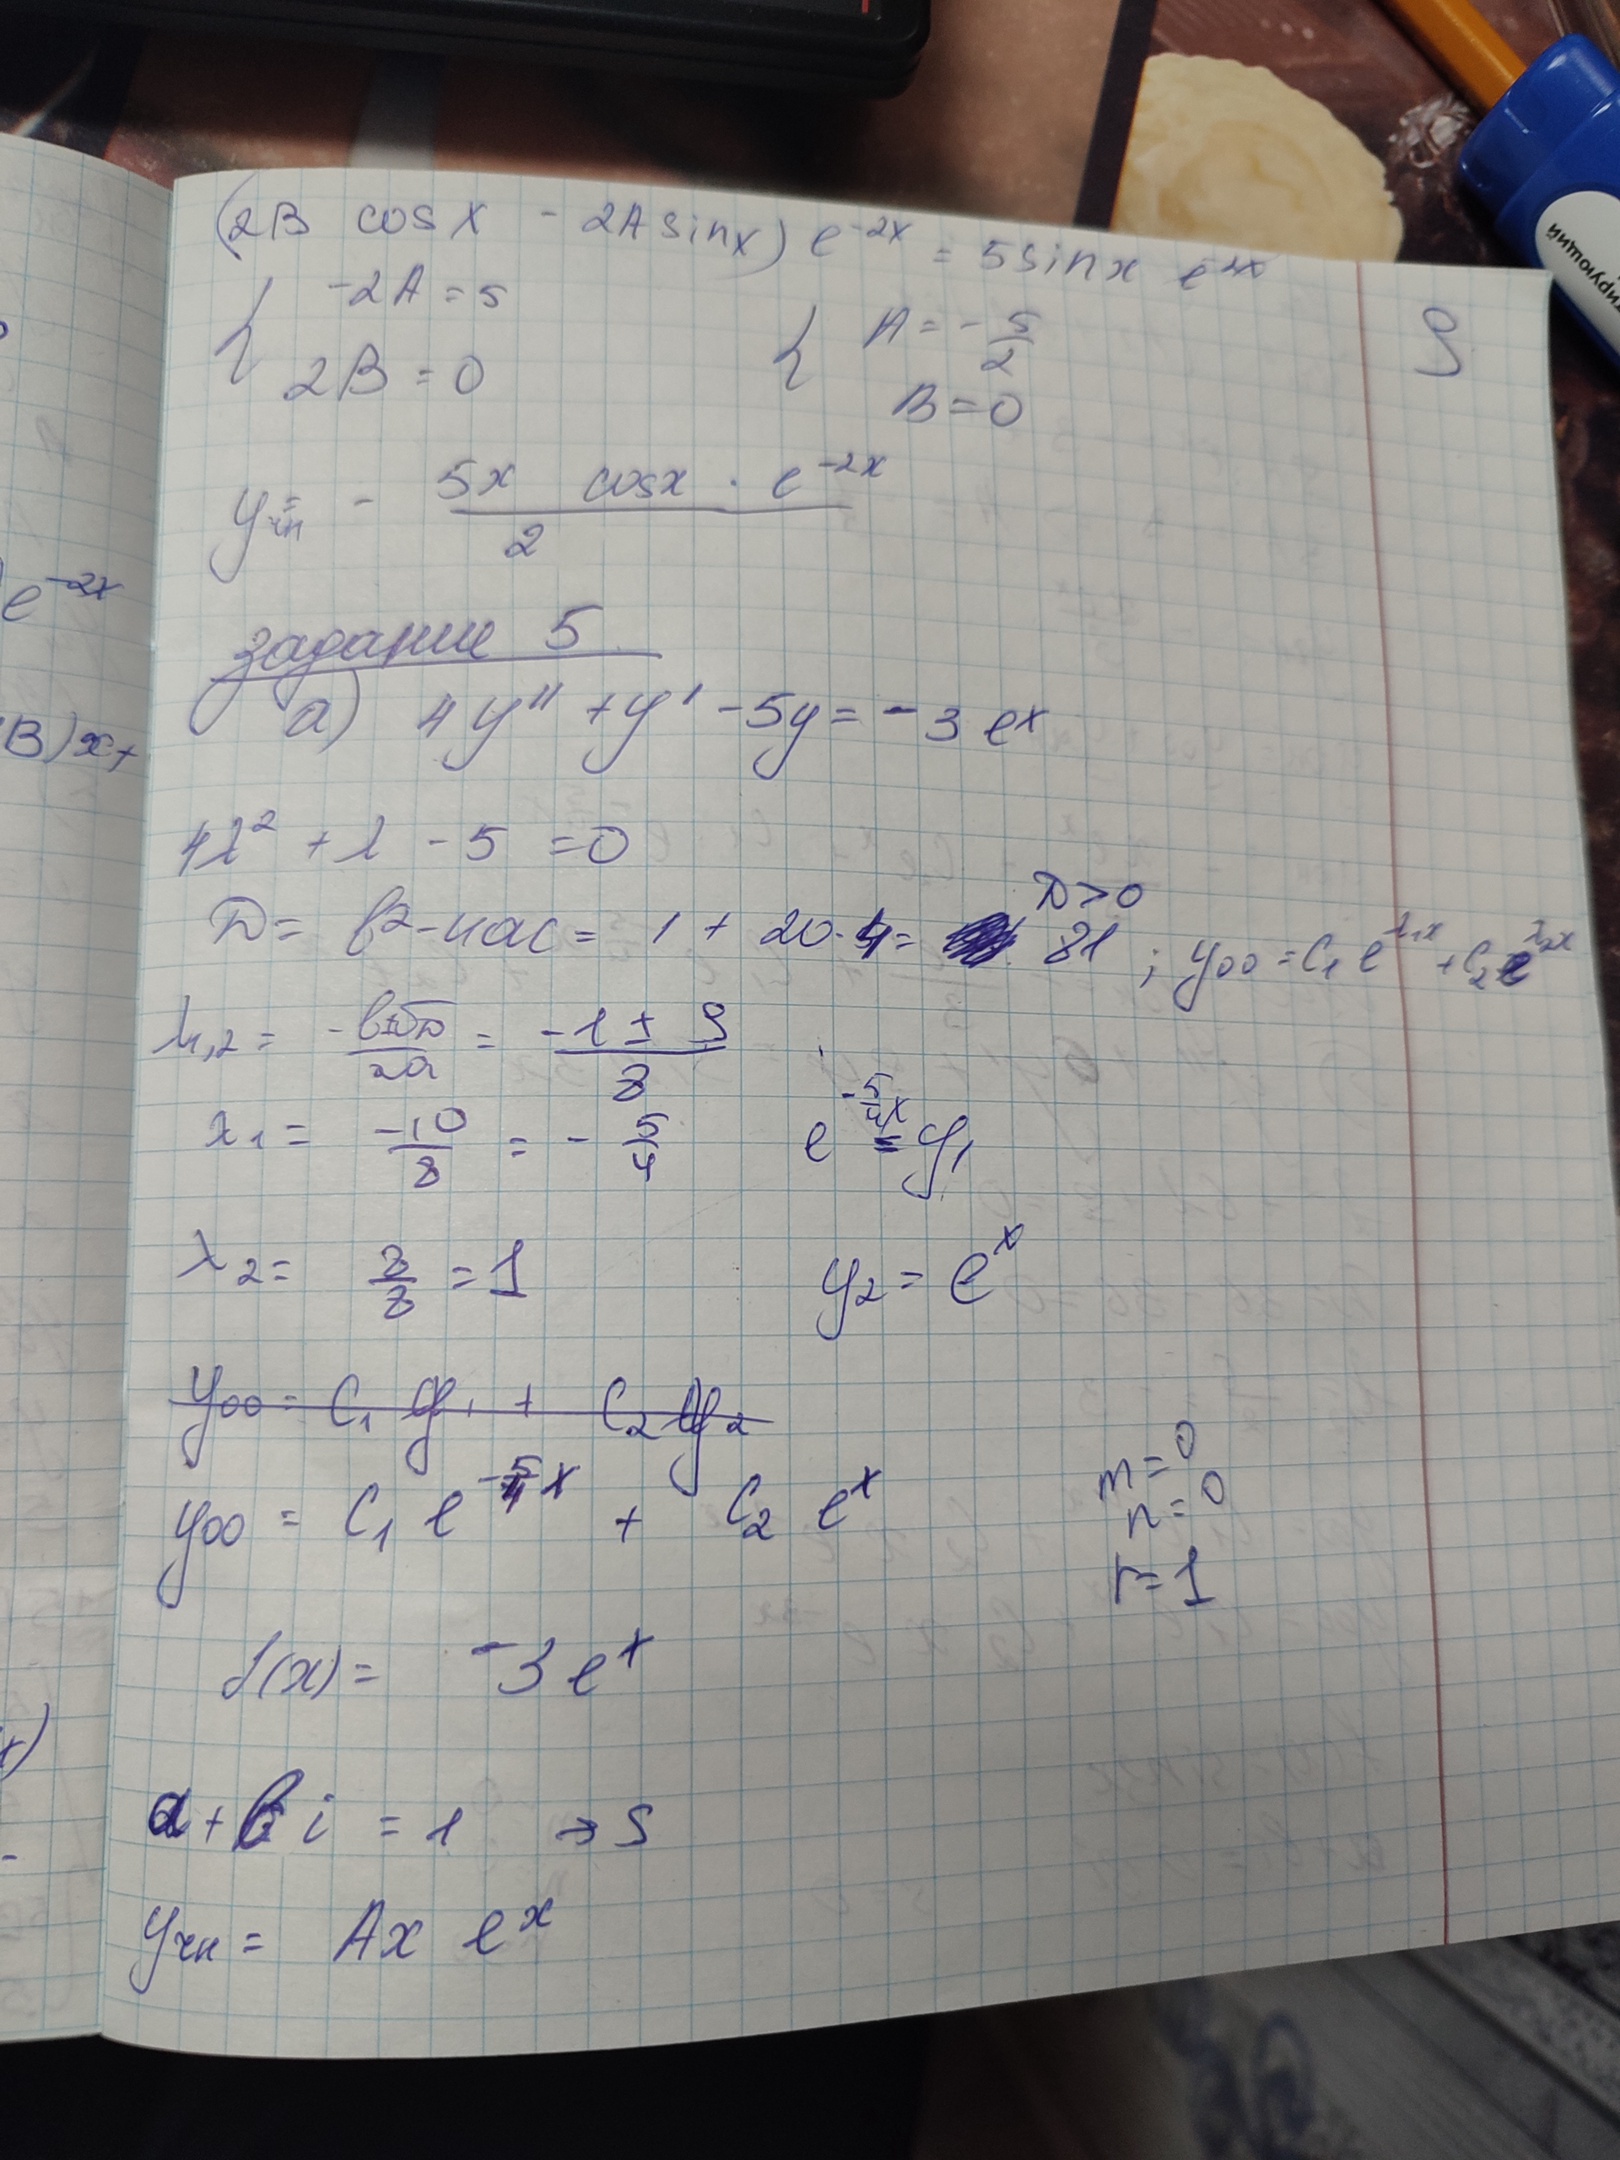 (2B cosx - 2A sinx) e^{-2x} = 5 sinx e^{-2x}
{ -2A = 5 { A = - 5/2
2B = 0 B = 0
9
y_{чн} = - (5x cosx · e^{-2x})/2
задание 5
а) 4y'' + y' - 5y = -3e^x
4λ² + λ - 5 = 0
D>0
D = b²-4ac = 1 + 20·4 = 81 ; y_{00} = C_1 e^{λ_1x} + C_2 e^{λ_2x}
λ_{1,2} = (-b±√D)/2a = (-1 ± 9)/8
λ_1 = -10/8 = - 5/4 e^{-5/4 x} = y_1
λ_2 = 8/8 = 1 y_2 = e^x
y_{00} = C_1 y_1 + C_2 y_2
y_{00} = C_1 e^{-5/4 x} + C_2 e^x
m=0
n=0
r=1
f(x) = -3e^x
a + bi = 1 → S
y_{чн} = Ax e^x
e^{-2x}
B)x+
x)
-
ирующий